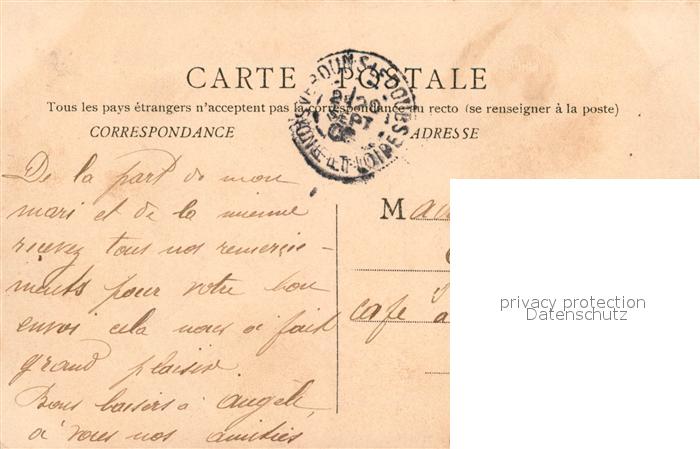 CARTE POSTALE
Tous les pays étrangers n'acceptent pas la correspondance au recto (se renseigner à la poste)
CORRESPONDANCE
ADRESSE
VERDUN-S-LE-DOUBS
SEPT
SAONE-ET-LOIRE
De la part de mon
mari et de la mienne
recevez tous nos remerçie-
ments pour votre bon
envoi cela nous a fait
grand plaisir.
Bons baisers a Angèle,
a vous nos amitiés
M
café
privacy protection
Datenschutz